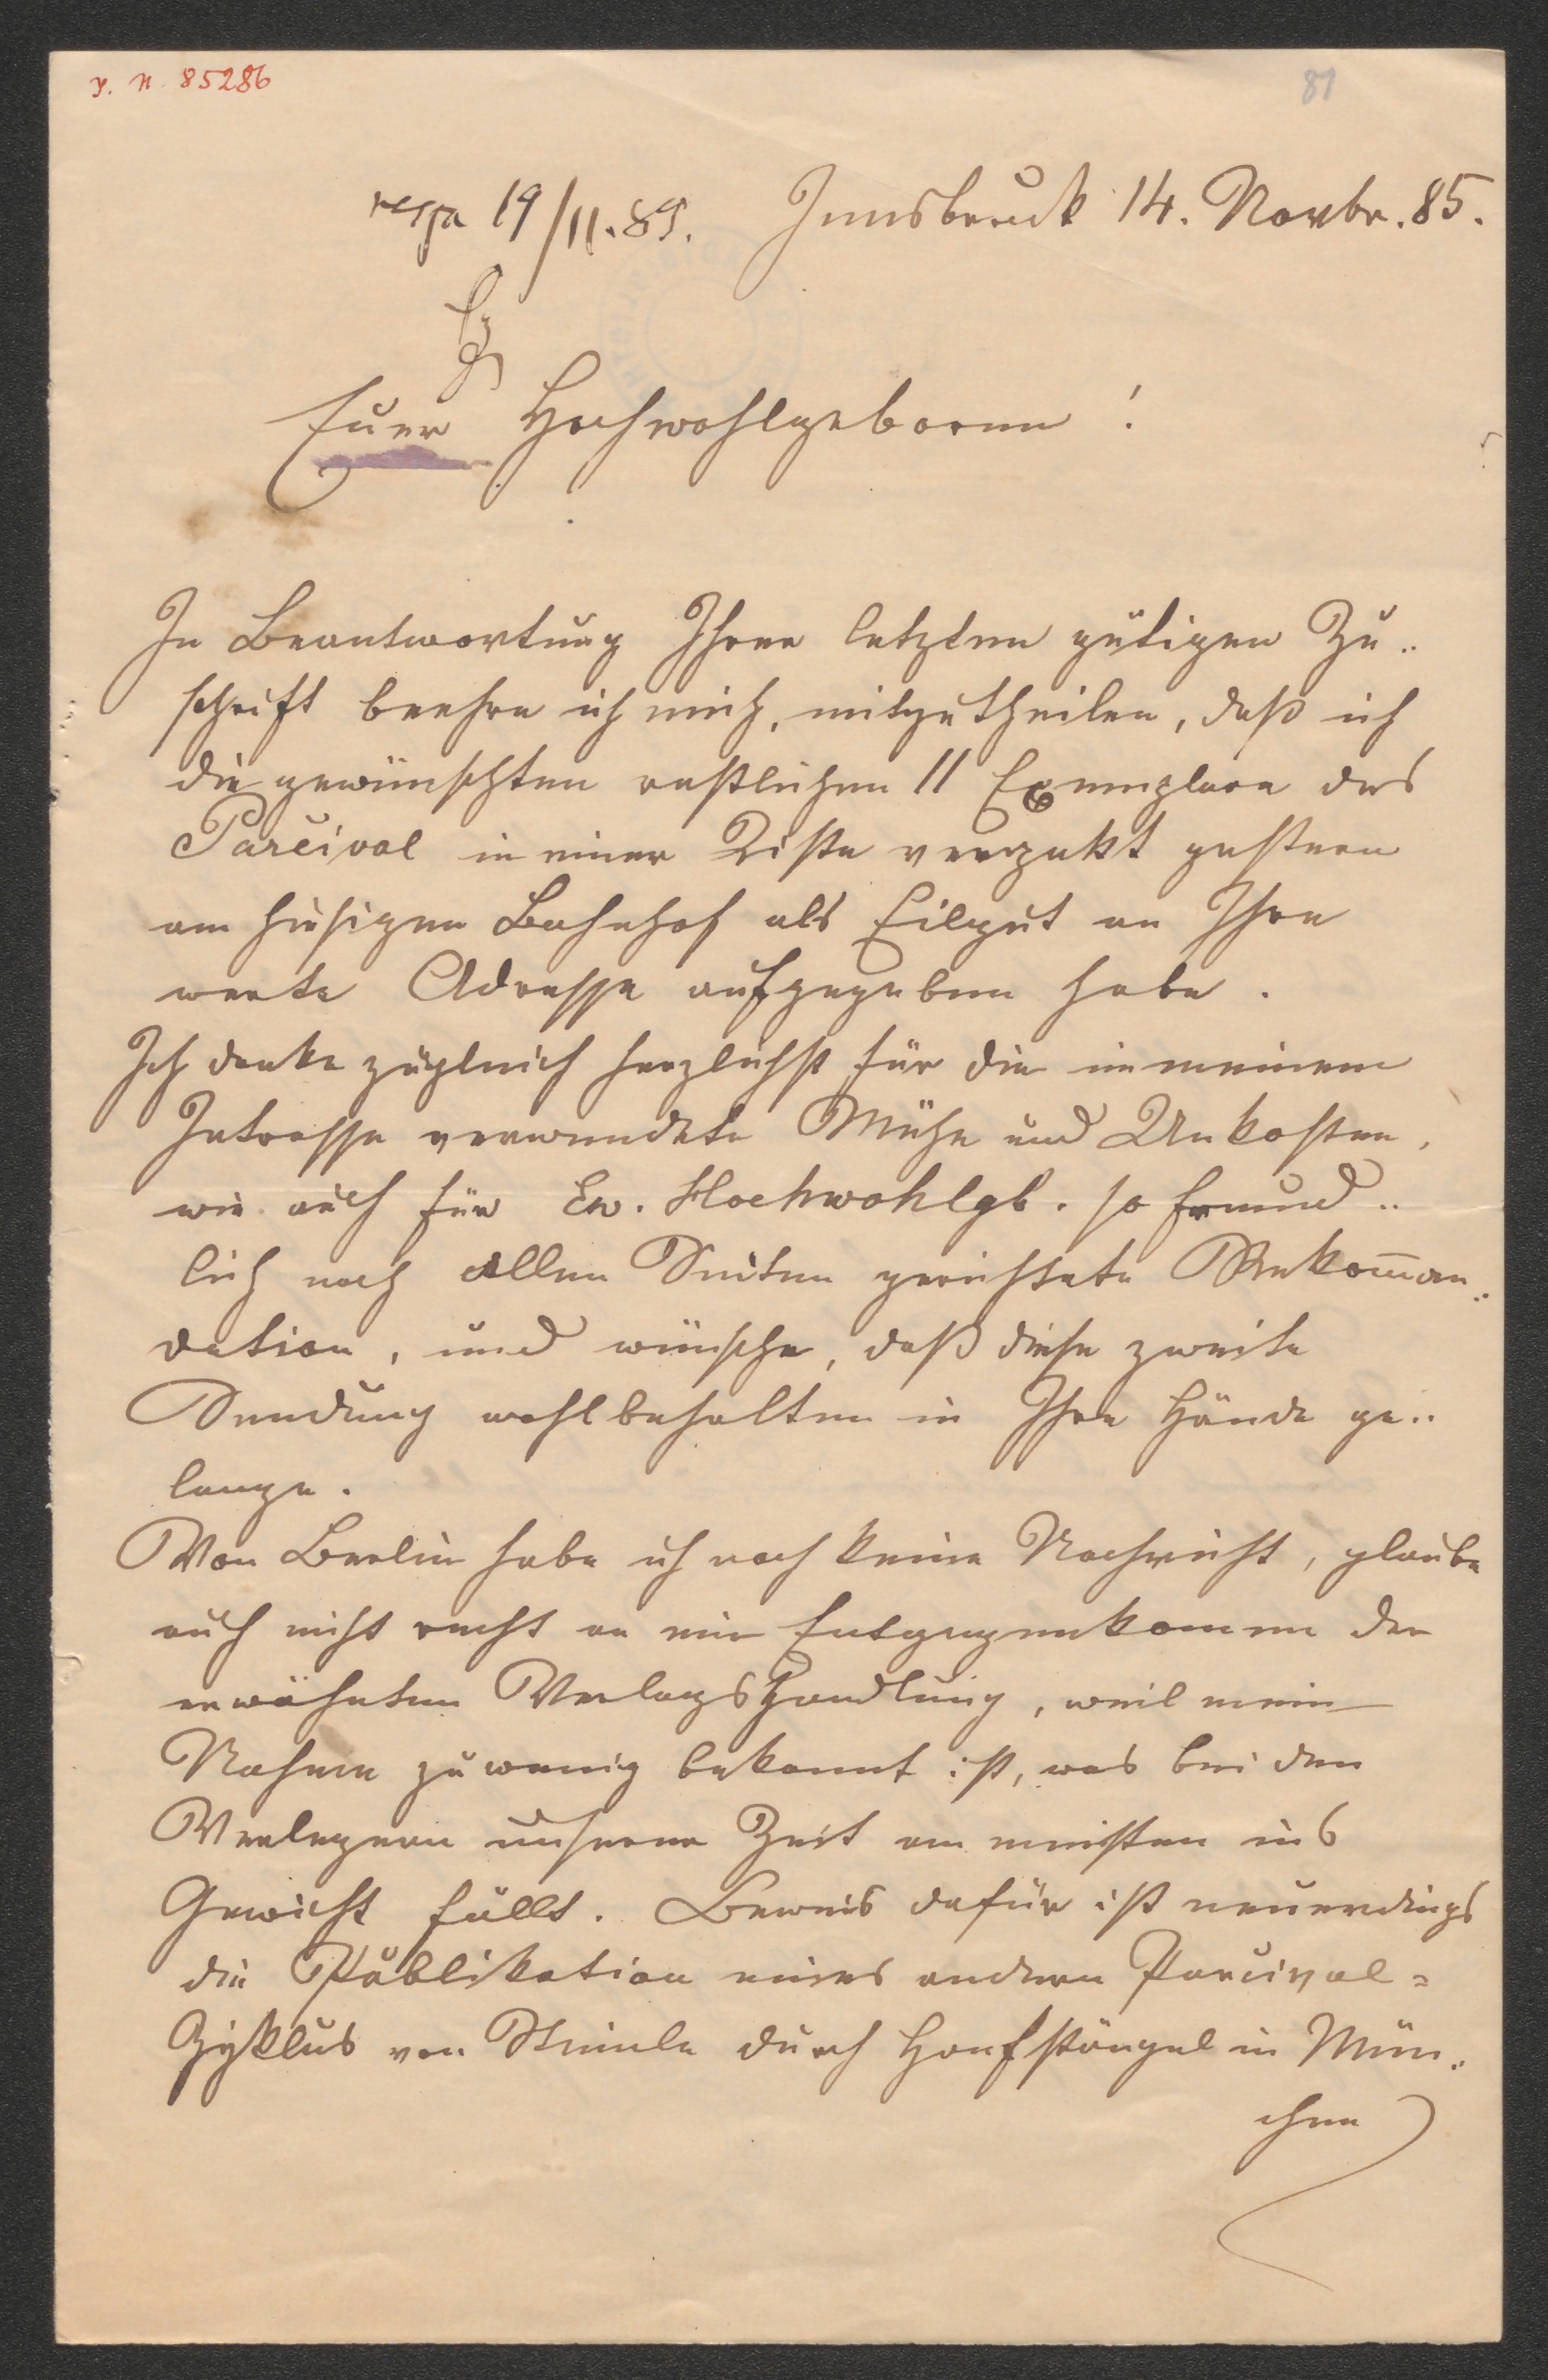 J. N. 85286
81
resp 19/11.85. Innsbruck 14. Novbr. 85.
Euer Hochwohlgeboren!
In Beantwortung Ihrer letzten gütigen Zu..
schrift beehre ich mich, mitzutheilen, daß ich
die gewünschten restlichen 11 Exemplare des
Parcival in einer Kiste verpakt gestern
am hiesigen Bahnhof als Eilgut an Ihre
werte Adresse aufgegeben habe.
Ich danke zugleich herzlichst für die in meinem
Intresse verwendete Mühe und Unkosten,
wie auch für Ew. Hochwohlgb. so freund..
lich nach allen Seiten gerichtete Rekom̅an..
dation, und wünsche, daß diese zweite
Sendung wohlbehalten in Ihre Hände ge..
lange.
Von Berlin habe ich noch keine Nachricht, glaube
auch nicht recht an ein Entgegenkommen der
erwähnten Verlagshandlung, weil mein
Nahme zu wenig bekannt ist, was bei den
Verlegern unserer Zeit am meisten ins
Gewicht fällt. Beweis dafür ist neuerdings
die Publikation eines andern Parcival=
Zyklus von Steinle durch Hanfstängel in Mün..
chen